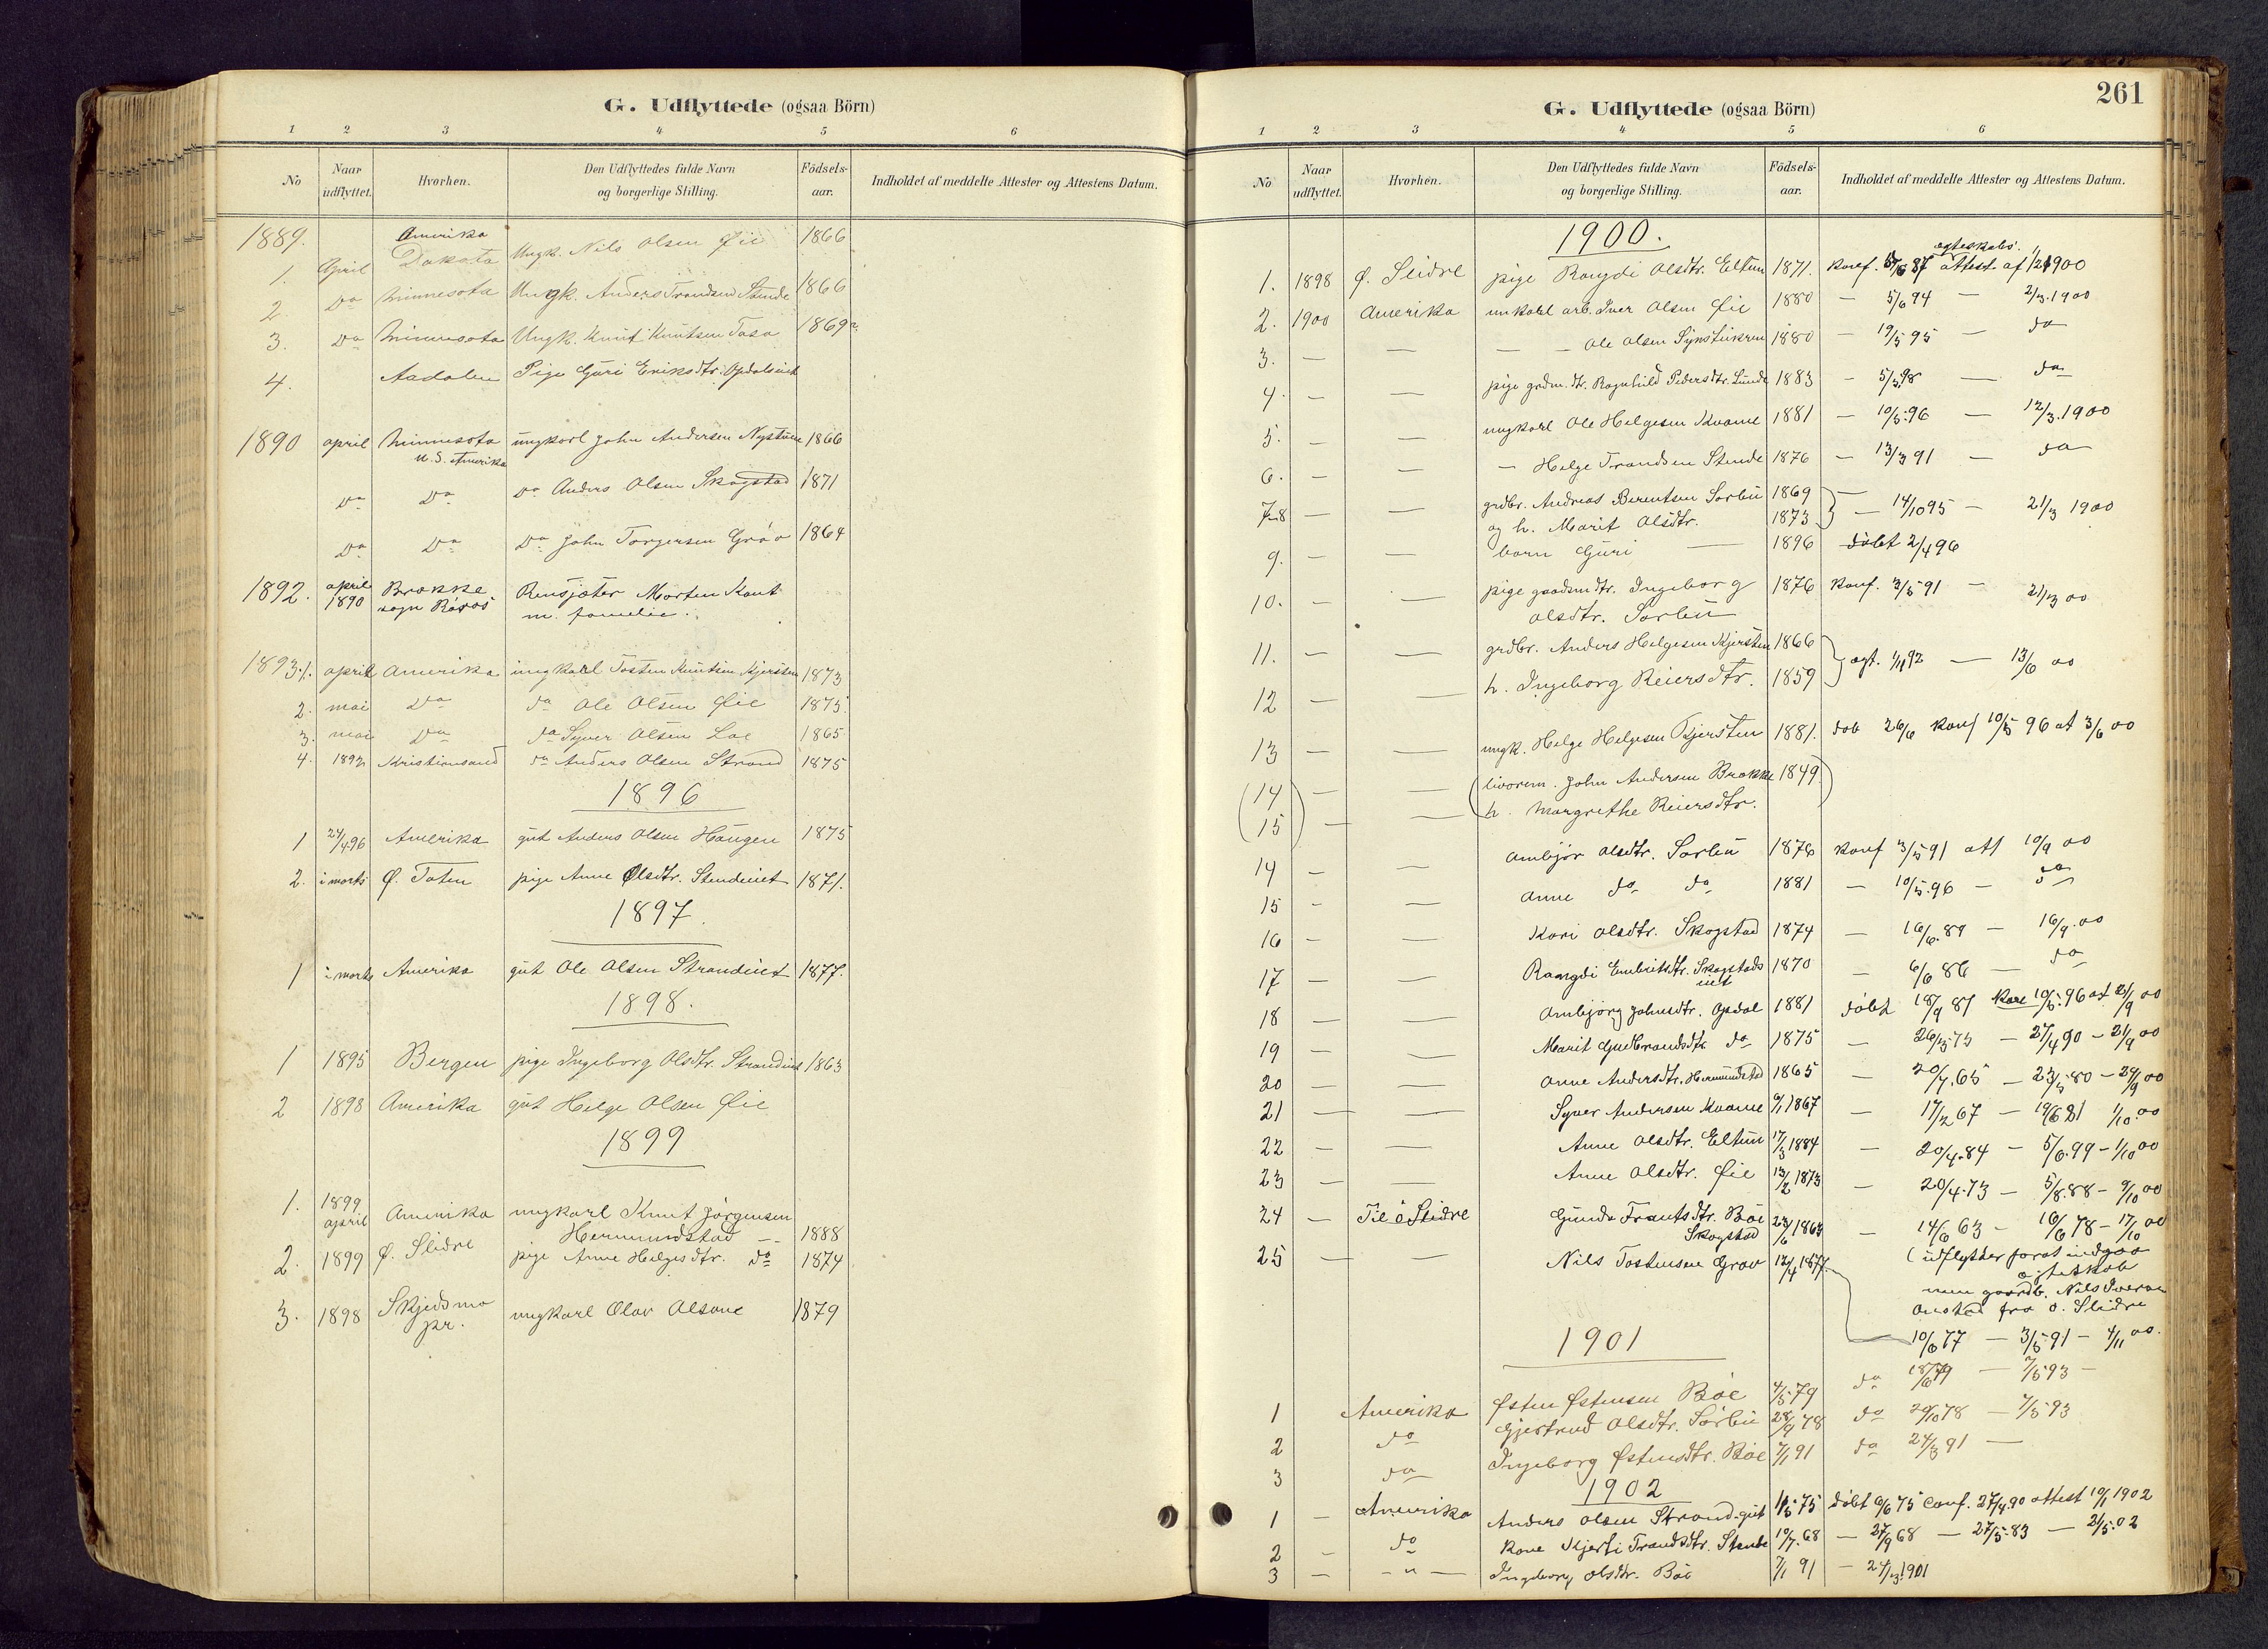 G. Udflyttede (ogsaa Börn)
1 2 3 4 5 6
No Naar udflyttet. Hvorhen. Den Udflyttedes fulde Navn og borgerlige Stilling. Födsels-aar. Indholdet af meddelte Attester og Attestens Datum.
1889. Amerika
1. April Dakota Ungk. Nils Olsen Øie 1866
2. Do Minnesota Ungk. Anders Trondsen Stende 1866
3. Do Minnesota Ungk. Knut Knutsen Tasa 1869
4. Aadalen Pige Guri Eriksdtr. Opdalseiet
1890 april Minnesota ungkarl John Andersen Nystuen 1866
U.S. Amerika
Do Do Do Anders Olsen Skogstad 1871
Do Do Do John Torgersen Gröv 1864
1892. april 1890 Brekke sogn Röros Rensjæter Morten Kant
m. familie.
1893. 1. april Amerika ungkarl Tosten Knutsen Kjersten 1873
2. mai Do do Ole Olsen Øie 1875
3. mai Do do Syver Olsen Loe 1865
4. 1892 Kristiansand do Anders Olsen Strand 1875
1896
1 24/4 96 Amerika gut Anders Olsen Haugen 1875
2. i marts Ø. Toten pige Anne Olsdtr. Stendeiet 1871.
1897.
1 i marts Amerika gut Ole Olsen Strandeiet 1877.
1898.
1 1895 Bergen pige Ingeborg Olsdtr. Strandeiet 1863
2 1898 Amerika gut Helge Olsen Øie
1899
1. 1899 april Amerika ungkarl Knut Jörgensen
Hermundstad 1888
2. 1899 Ø. Slidre pige Anne Helgesdtr. do 1874
3. 1898 Skjedsmo pr. ungkarl Olav Olsone 1879
261
G. Udflyttede (ogsaa Börn)
1 2 3 4 5 6
No Naar udflyttet. Hvorhen. Den Udflyttedes fulde Navn og borgerlige Stilling. Födsels-aar. Indholdet af meddelte Attester og Attestens Datum.
1900.
ægteskabs.
1. 1898 Ø. Slidre pige Rangdi Olsdtr. Eltun 1871. Konf. 87 attest af 1900
2. 1900 Amerika unkarl arb. Iver Olsen Øie 1880 — 5/6 94 — 2/3 1900
3. — — — — Ole Olsen Synstukren 1880 — 19/5 95 — do
4. — — pige grdm. dtr. Ragnhild Pedersdtr. Lunde 1883 — 5/5 98 — do
5. — — ungkarl Ole Helgesen Kvame 1881 — 10/5 96 — 12/3 1900
6. — — — Helge Trondsen Stende 1876 — 13/3 91 — do
7-8 — — grdbr. Andreas Berentsen Sorbu 1869
og h. Marit Olsdtr. 1873 — 14/10 95 — 21/3 1900
9. — — barn Guri — 1896 döbt 2/4 96
10. — — pige gaardmdtr. Ingeborg 1876 Konf. 3/5 91 — 21/3 00
Olsdtr. Sorbu
11. — — grdbr. Anders Helgesen Kjersten 1866
12 — — h. Ingeborg Reiersdtr. 1859 ægt. 1/11 92 — 13/6 00
13 — — ungk. Helge Helgesen Kjersten 1881. döb 26/6 Konf 10/5 96 at 3/6 00
(14 — — (livörem. John Andersen Brekke 1849.)
(15) — — h. Margrethe Reiersdtr.
14 — — Ambjör Olsdtr. Sorbu 1876 Konf 3/5 91 att 10/9 00
15 — — Anne do do 1881 — 10/5 96 — do
16 — — Kari Olsdtr. Skogstad 1874 — 16/6 89 — 16/9 00
17 — — Rangdi Embritsdtr. Skogstads 1870 — 6/6 86 — do
eiet
18 — — Ambjörg Johnsdtr. Opdal 1881 döbt 18/9 81 10/5 96 at 21/9 00
19 — — Marit Gudbrandsdtr. do 1875 — 26/12 75 — 27/4 90 — 21/9 00
20 — — Anne Andersdtr. Hermundstad 1865 — 20/7 65 — 23/5 80 — 24/9 00
21 — — Syver Andersen Kvame 9/1 1867 — 17/2 67 — 19/6 81 1/10 00
22 — — Anne Olsdtr. Eltun 17/3 1884 — 20/4 84 — 5/6 99 — 1/10 00
23 — — Anne Olsdtr. Øie 13/2 1873 — 20/4 73 — 5/8 88 — 9/10 00
24 — Til ö Slidre Gunda Frantsdtr. Böe
Skogstad 23/6 1863 — 14/6 63 — 16/6 78 — 17/10 00
25 — — Nils Tostensen Grov 12/4 1877. (udflytter forat indgaa
ægteskab
men gaardb. Nils Iversen
fra ö. Slidre
10/6 77 — 3/5 91 — 4/11 00.
1901
1 Amerika Østen Østensen Böe 4/5 79 do 18/6 79 — 7/5 93 —
2 do Gjertrud Olsdtr. Sörbu 28/9 78 do 20/10 78 — 7/5 93
3 do Ingeborg Østensdtr. Böe 7/1 91 do 24/3 91 —
1902
1 — Amerika Anders Olsen Strand gut 11/5 75 döbt 6/6 75 conf. 27/4 90 attest 19/1 1902
2 — do Kone Kjersti Trondsdtr. Stende 19/7 68 — 27/9 68 — 27/5 83 — 21/5 02
3 — — " — Ingeborg Olsdtr. Böe 7/1 91 — 24/3 1901